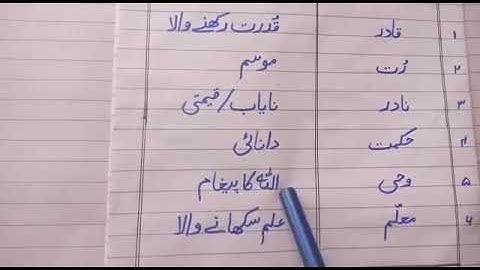 ۱ قادر قُدرت رکھنے والا
۲ رُت موسم
۳ نادر نایاب/قیمتی
۴ حکمت دانائی
۵ وحی اللہ کا پیغام
۶ معلّم علم سکھانے والا